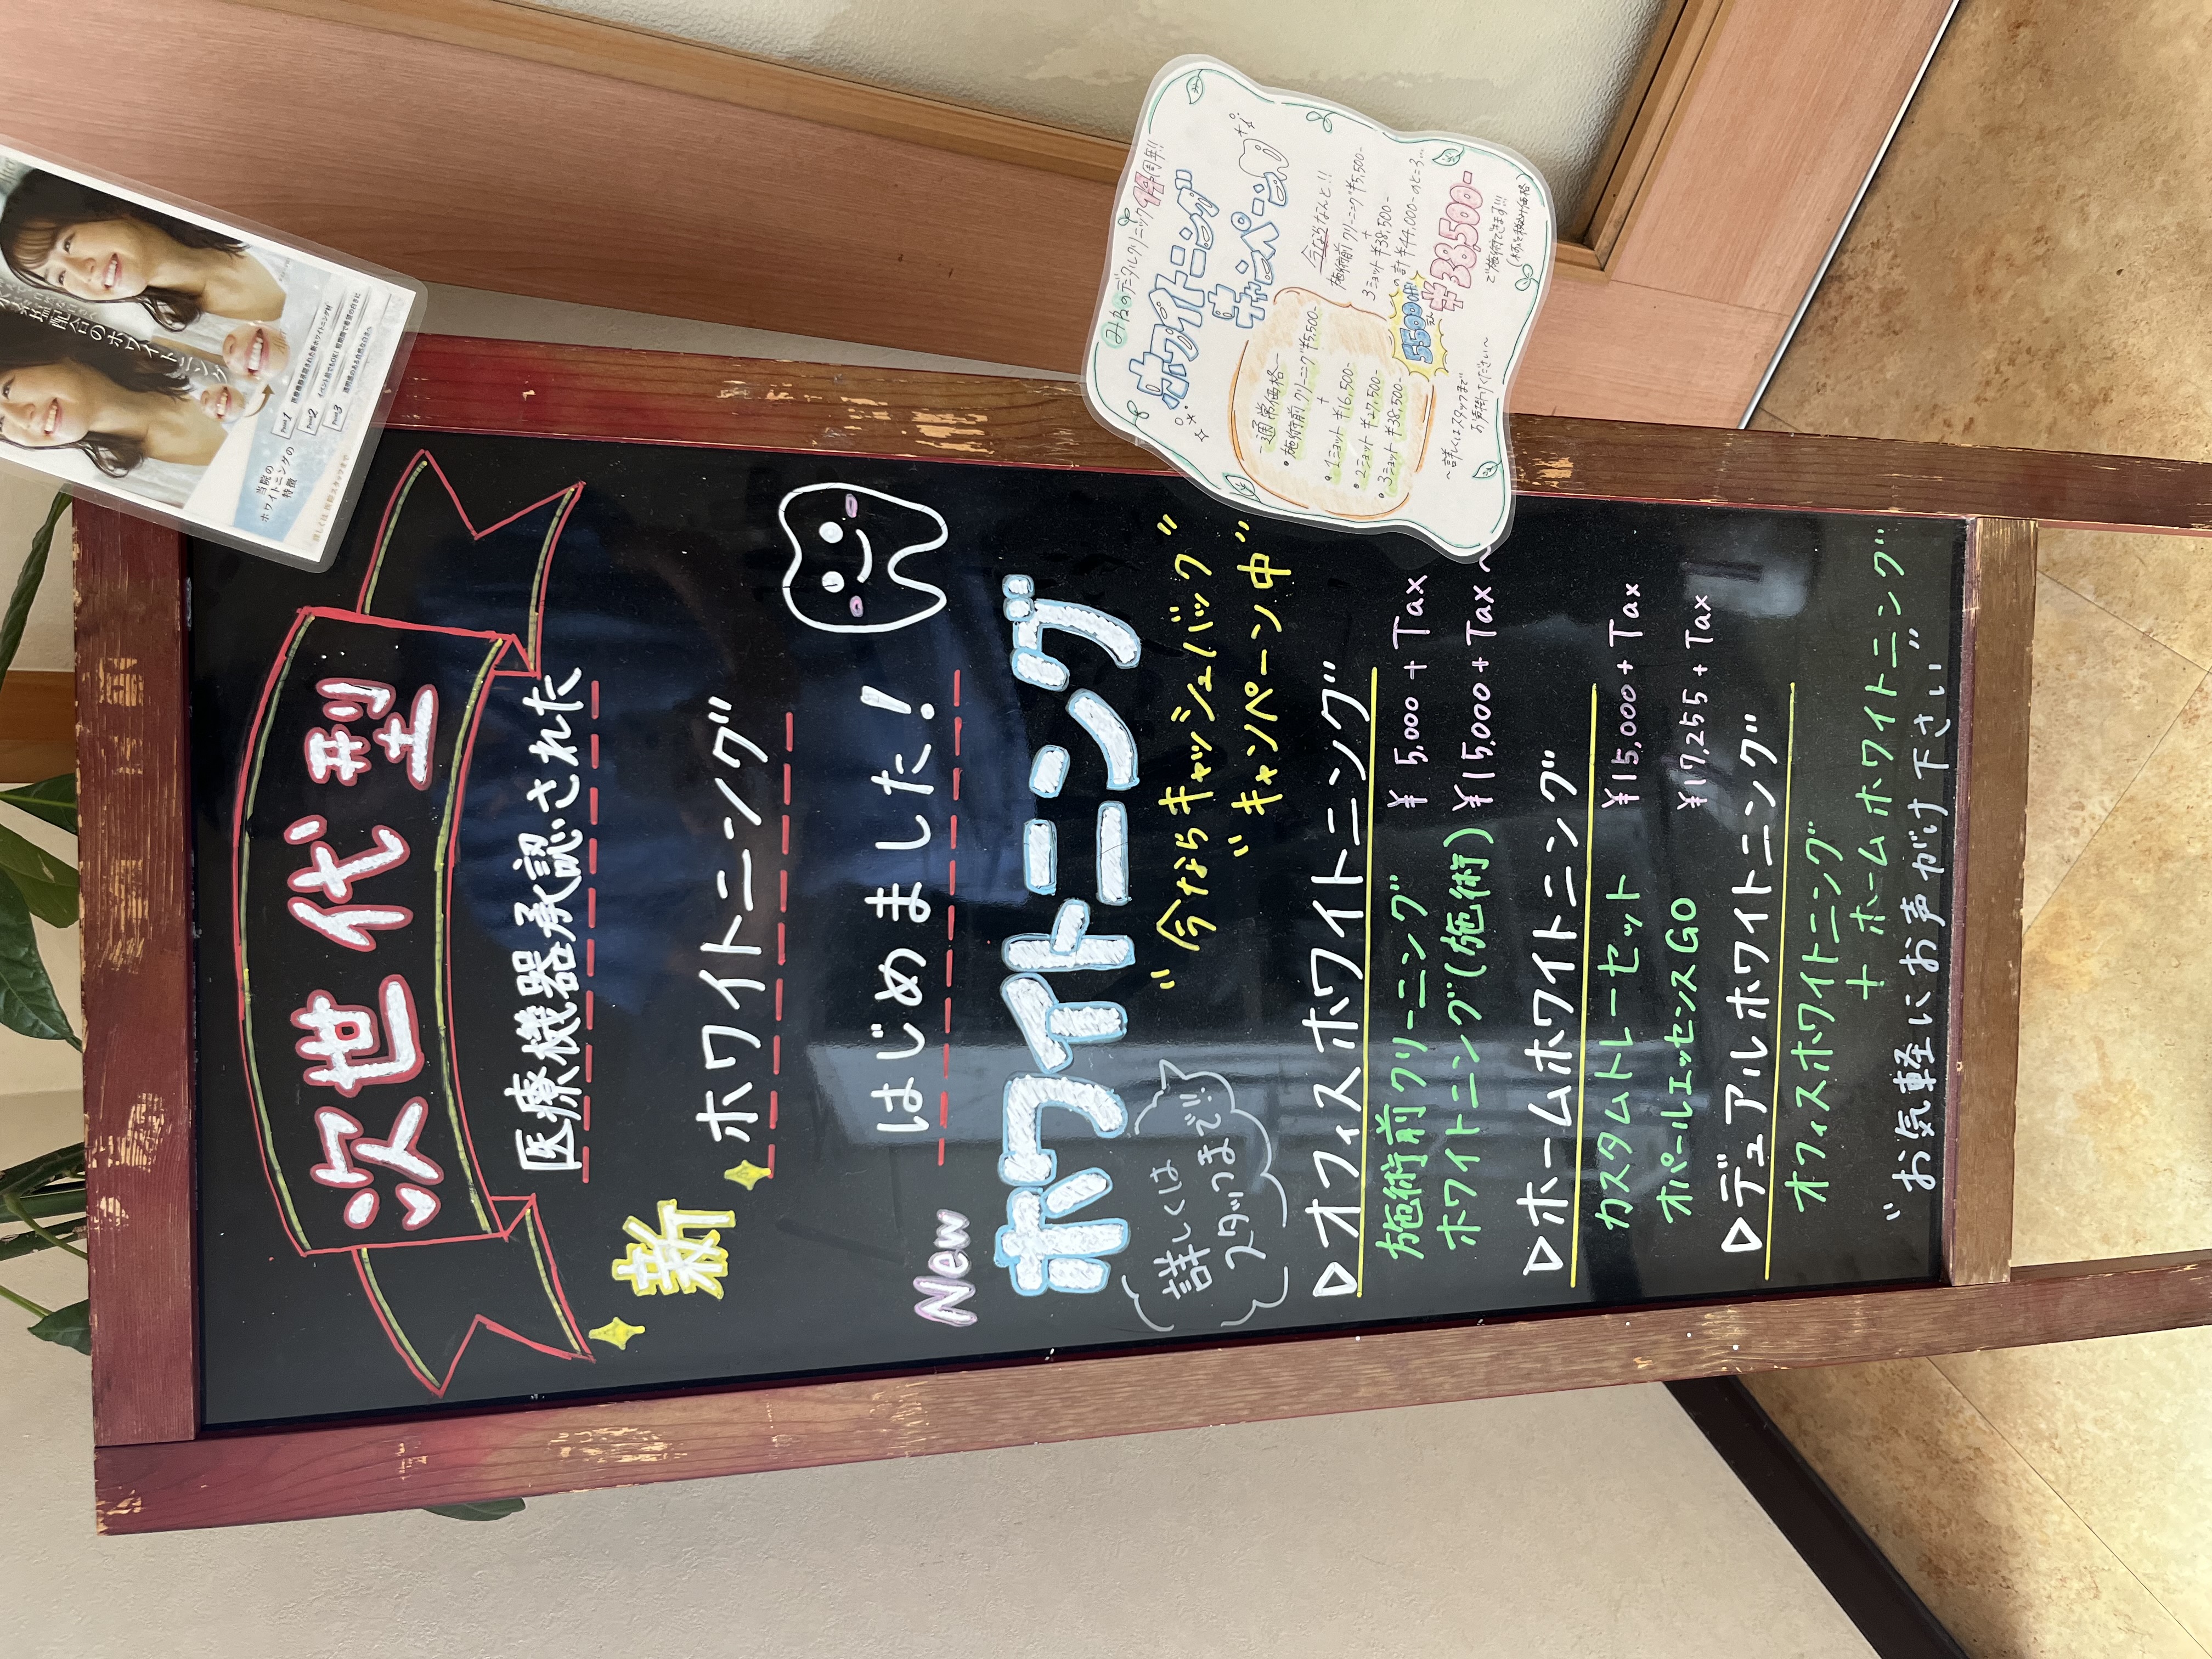 次世代型
医療機器承認された
新
ホワイトニング
はじめました！
New
ホワイトニング
詳しくは
スタッフまで!!
"今ならキャッシュバック"
"キャンペーン中"
▷オフィスホワイトニング
施術前クリーニング ¥5,000+Tax
ホワイトニング(施術) ¥15,000+Tax～
▷ホームホワイトニング
カスタムトレーセット ¥15,000+Tax
オパールエッセンスGO ¥17,255+Tax
▷デュアルホワイトニング
オフィスホワイトニング
+ ホームホワイトニング
"お気軽にお声がけ下さい"
配合のホワイトニング
当院の
ホワイトニングの
特徴
Point 1
Point 2
Point 3
のデジタルクリニック14周年!!
ホワイトニング
キャンペーン
-通常価格-
・施術前クリーニング¥5,500-
+
・1ショット¥16,500-
・2ショット¥27,500-
・3ショット¥38,500-
今ならなんと!!
施術前クリーニング¥5,500-
+
3ショット¥38,500-
の計¥44,000-のところ…
5500円
¥38,500-
ご施術できます!!!
～詳しくはスタッフまで
お声掛けください～